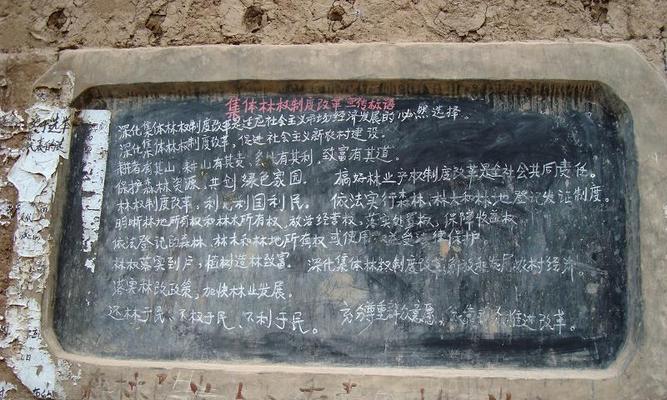 集体林权制度改革宣传标语
深化集体林权制度改革是适应社会主义市场经济发展的必然选择。
深化集体林权制度改革,促进社会主义新农村建设。
耕者有其山,耕山有其责,务林有其利,致富有其道。
保护森林资源,共创绿色家园。 搞好林业产权制度改革是全社会共同责任。
林权制度改革,利民利国利民。 依法实行森林、林木和林地登记发证制度。
明晰林地所有权和林木所有权,放活经营权,落实处置权,保障收益权
依法登记的森林、林木和林地所有权或使用 受 保护
林权落实到户,植树造林致富。 深化集体林权制度改革 发展农村经济。
落实林改政策,加快林业发展。
还林于民、还权于民、还利于民。 充分尊重群众意愿, 推进改革。